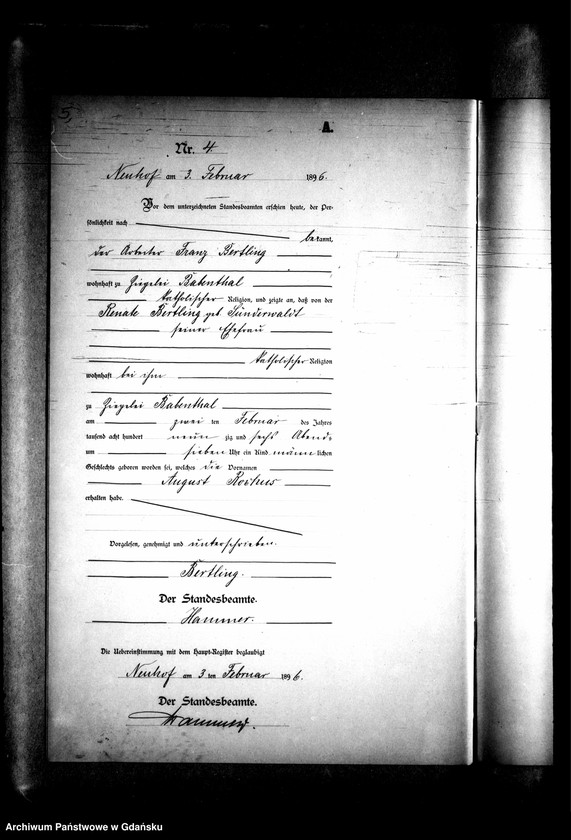 5,
A.
Nr. 4.
Neuhof am 3. Februar 1896.
Vor dem unterzeichneten Standesbeamten erschien heute, der Per-
sönlichkeit nach
bekannt,
der Arbeiter Franz Bertling
wohnhaft zu Ziegelei Rabenthal
katholischer Religion, und zeigte an, daß von der
Renate Bertling geb. Sünderwaldt
seiner Ehefrau
katholischer Religion
wohnhaft bei ihm
zu Ziegelei Rabenthal
am zwei ten Februar des Jahres
tausend acht hundert neun zig und sechs Abends
um sieben Uhr ein Kind männlichen
Geschlechts geboren worden sei, welches die Vornamen
August
erhalten habe.
Vorgelesen, genehmigt und unterschrieben.
Bertling.
Der Standesbeamte.
Hammer.
Die Uebereinstimmung mit dem Haupt-Register beglaubigt
Neuhof am 3 ten Februar 1896.
Der Standesbeamte.
Hammer.
Archiwum Państwowe w Gdańsku